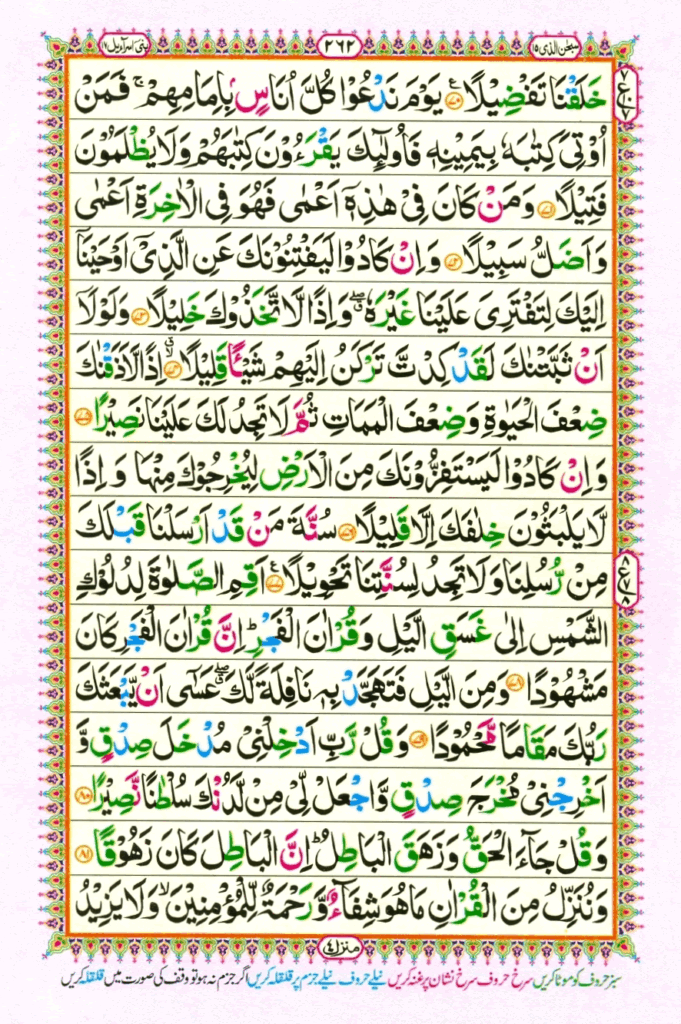 سبحٰن الذی ۱۵
۲۶۲
بنی اسرآءیل ۱۷
خَلَقْنَا تَفْضِيْلًا ۧ۝۷۰ يَوْمَ نَدْعُوْا كُلَّ اُنَاسٍۭ بِاِمَامِهِمْ ۚ فَمَنْ
اُوْتِيَ كِتٰبَهٗ بِيَمِيْنِهٖ فَاُولٰٓئِكَ يَقْرَءُوْنَ كِتٰبَهُمْ وَلَا يُظْلَمُوْنَ
فَتِيْلًا ۝۷۱ وَمَنْ كَانَ فِيْ هٰذِهٖٓ اَعْمٰى فَهُوَ فِي الْاٰخِرَةِ اَعْمٰى
وَاَضَلُّ سَبِيْلًا ۝۷۲ وَاِنْ كَادُوْا لَيَفْتِنُوْنَكَ عَنِ الَّذِيْٓ اَوْحَيْنَآ
اِلَيْكَ لِتَفْتَرِيَ عَلَيْنَا غَيْرَهٗ ۖ وَاِذًا لَّاتَّخَذُوْكَ خَلِيْلًا ۝۷۳ وَلَوْلَآ
اَنْ ثَبَّتْنٰكَ لَقَدْ كِدْتَّ تَرْكَنُ اِلَيْهِمْ شَيْـًٔا قَلِيْلًا ۝۷۴ۙ اِذًا لَّاَذَقْنٰكَ
ضِعْفَ الْحَيٰوةِ وَضِعْفَ الْمَمَاتِ ثُمَّ لَا تَجِدُ لَكَ عَلَيْنَا نَصِيْرًا ۝۷۵
وَاِنْ كَادُوْا لَيَسْتَفِزُّوْنَكَ مِنَ الْاَرْضِ لِيُخْرِجُوْكَ مِنْهَا وَاِذًا
لَّا يَلْبَثُوْنَ خِلٰفَكَ اِلَّا قَلِيْلًا ۝۷۶ سُنَّةَ مَنْ قَدْ اَرْسَلْنَا قَبْلَكَ
مِنْ رُّسُلِنَا وَلَا تَجِدُ لِسُنَّتِنَا تَحْوِيْلًا ۧ۝۷۷ اَقِمِ الصَّلٰوةَ لِدُلُوْكِ
الشَّمْسِ اِلٰى غَسَقِ الَّيْلِ وَقُرْاٰنَ الْفَجْرِ ۭ اِنَّ قُرْاٰنَ الْفَجْرِ كَانَ
مَشْهُوْدًا ۝۷۸ وَمِنَ الَّيْلِ فَتَهَجَّدْ بِهٖ نَافِلَةً لَّكَ ۖ عَسٰٓى اَنْ يَّبْعَثَكَ
رَبُّكَ مَقَامًا مَّحْمُوْدًا ۝۷۹ وَقُلْ رَّبِّ اَدْخِلْنِيْ مُدْخَلَ صِدْقٍ وَّ
اَخْرِجْنِيْ مُخْرَجَ صِدْقٍ وَّاجْعَلْ لِّيْ مِنْ لَّدُنْكَ سُلْطٰنًا نَّصِيْرًا ۝۸۰
وَقُلْ جَآءَ الْحَقُّ وَزَهَقَ الْبَاطِلُ ۭ اِنَّ الْبَاطِلَ كَانَ زَهُوْقًا ۝۸۱
وَنُنَزِّلُ مِنَ الْقُرْاٰنِ مَا هُوَ شِفَآءٌ وَّرَحْمَةٌ لِّلْمُؤْمِنِيْنَ ۙ وَلَا يَزِيْدُ
منزل ۴
سبز حروف کو موٹا کریں سرخ حروف سرخ نشان پر غنہ کریں نیلے حروف نیلے جزم پر قلقلہ کریں اگر جزم نہ ہو تو وقف کی صورت میں قلقلہ کریں